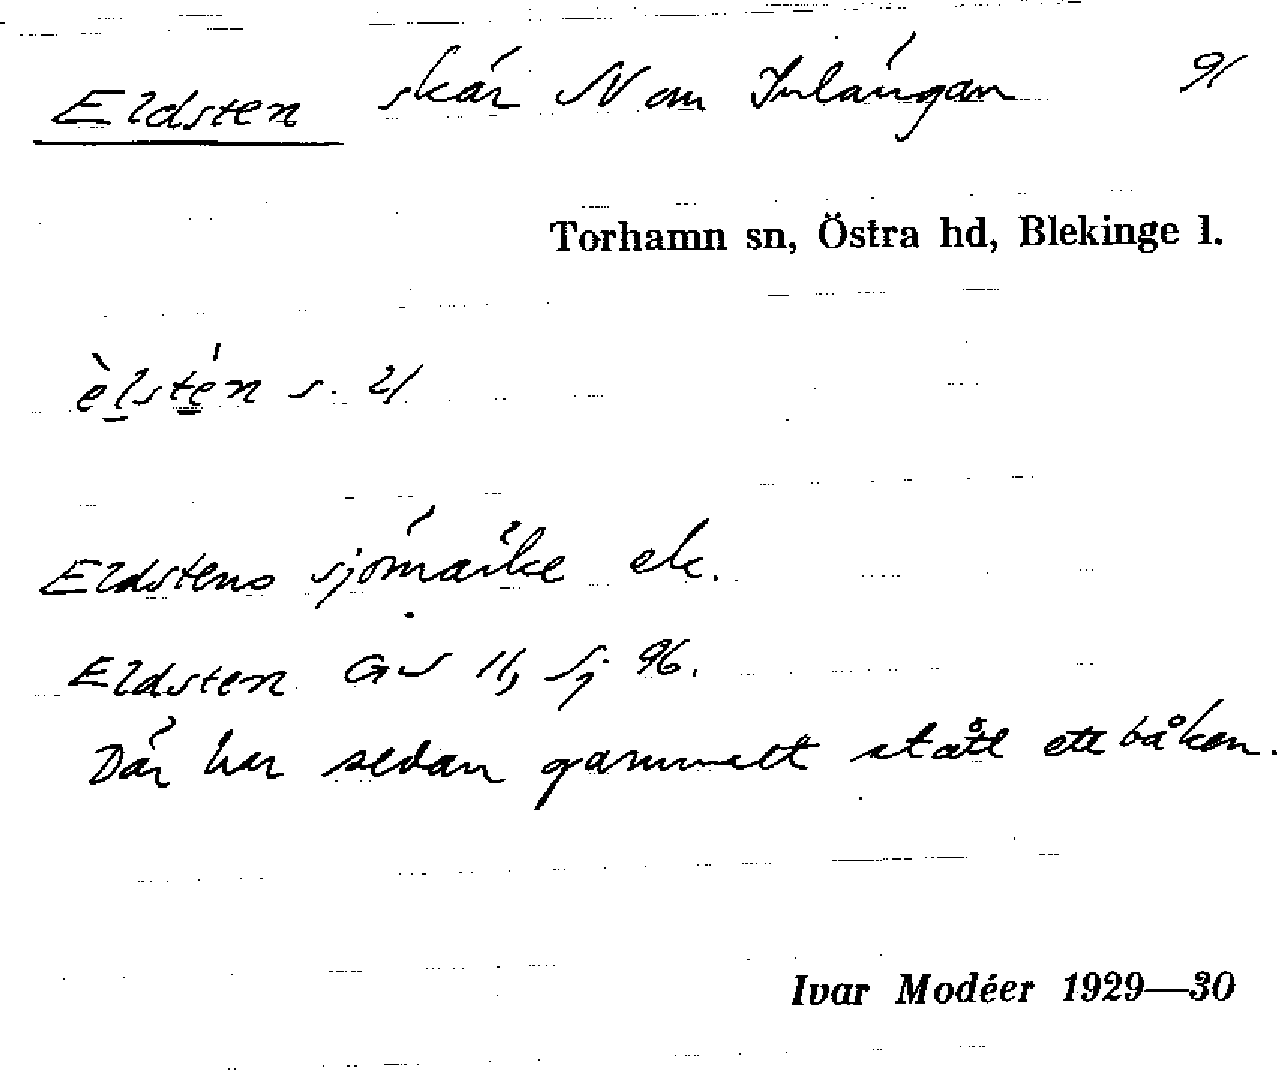 Eldsten skär N om Inlångan 9/
Torhamn sn, Östra hd, Blekinge l.
èlstén s. 2/
Eldstens sjömärke ek.
Eldsten GS 11, Sj 96.
Där har sedan gammalt stått ett båken.
Ivar Modéer 1929—30